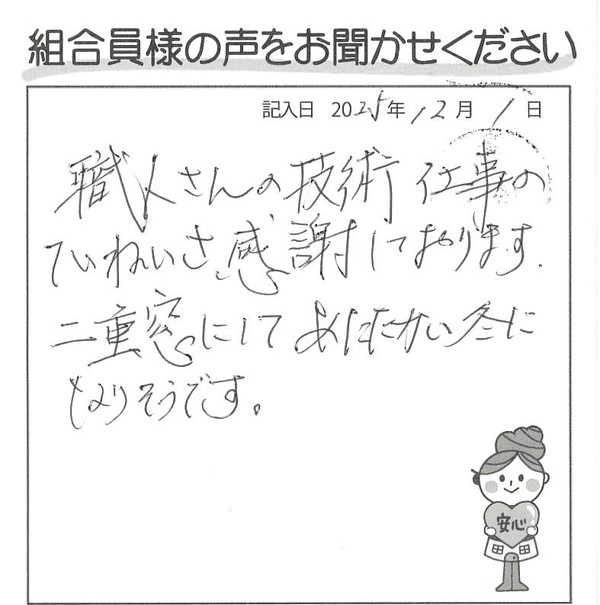 組合員様の声をお聞かせください
記入日 2025年12月1日
職人さんの技術 仕事の
ていねいさ感謝しております.
二重窓にして あたたかい冬に
なりそうです。
安心